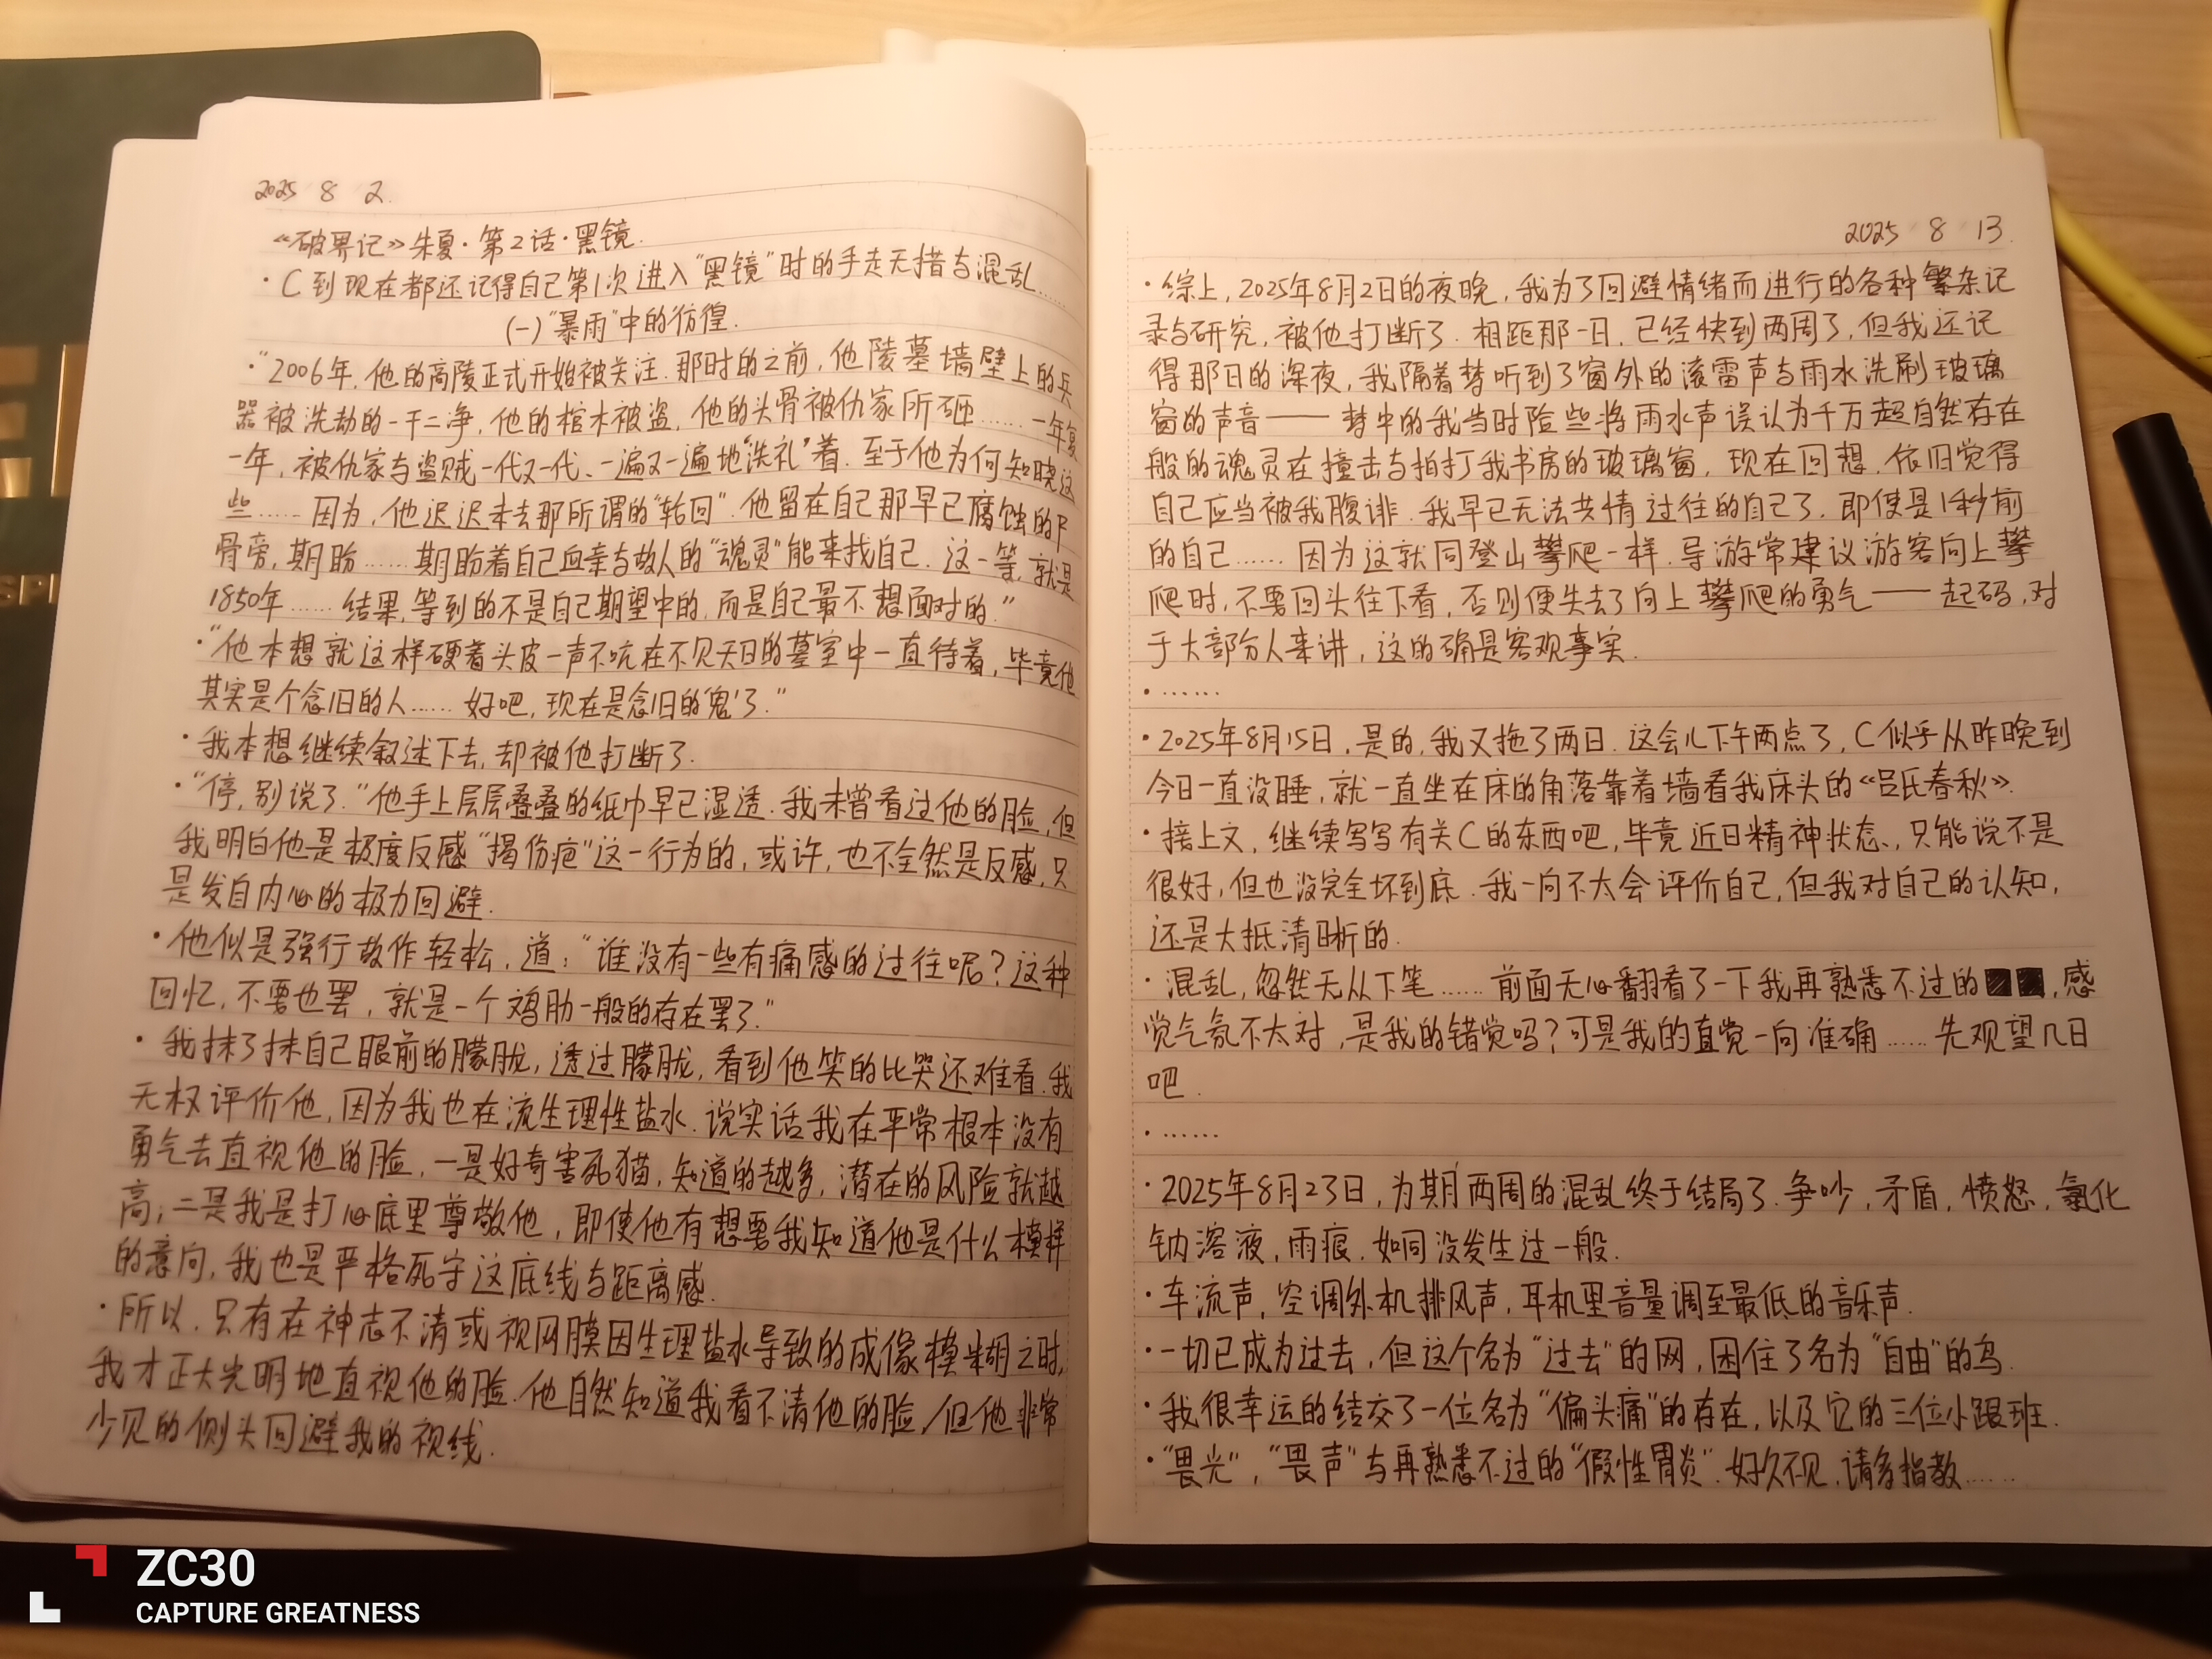 2025 8 2.
《破界记》朱夏·第2话·黑镜.
·C到现在都还记得自己第1次进入"黑镜"时的手走无措与混乱……
(一)"暴雨"中的彷徨.
·"2006年,他的高陵正式开始被关注.那时的之前,他陵墓墙壁上的兵
器被洗劫的一干二净,他的棺木被盗,他的头骨被仇家所砸……一年复
一年,被仇家与盗贼一代又一代、一遍又一遍地'洗礼'着.至于他为何知晓这
些……因为,他迟迟未去那所谓的"轮回".他留在自己那早已腐蚀的
骨旁,期盼……期盼着自己血亲与故人的"魂灵"能来找自己.这一等,就是
1850年……结果,等到的不是自己期望中的,而是自己最不想面对的."
·"他本想就这样硬着头皮一声不吭在不见天日的墓室中一直待着,毕竟他
其实是个念旧的人……好吧,现在是念旧的'鬼'了."
·我本想继续叙述下去,却被他打断了.
·"停,别说了."他手上层层叠叠的纸巾早已湿透.我未曾看过他的脸,但
我明白他是极度反感"揭伤疤"这一行为的,或许,也不全然是反感,只
是发自内心的极力回避.
·他似是强行故作轻松,道:"谁没有一些有痛感的过往呢?这种
回忆,不要也罢,就是一个鸡肋一般的存在罢了."
·我抹了抹自己眼前的朦胧,透过朦胧,看到他笑的比哭还难看.我
无权评价他,因为我也在流生理性盐水.说实话我在平常根本没有
勇气去直视他的脸,一是好奇害死猫,知道的越多,潜在的风险就越
高;二是我是打心底里尊敬他,即使他有想要我知道他是什么模样
的意向,我也是严格死守这底线与距离感.
·所以,只有在神志不清或视网膜因生理盐水导致的成像模糊之时,
我才正大光明地直视他的脸.他自然知道我看不清他的脸,但他非常
少见的侧头回避我的视线.
2025 8 13.
·综上,2025年8月2日的夜晚,我为了回避情绪而进行的各种繁杂记
录与研究,被他打断了.相距那一日,已经快到两周了,但我还记
得那日的深夜,我隔着梦听到了窗外的滚雷声与雨水洗刷玻璃
窗的声音——梦中的我当时险些将雨水声误认为千万超自然存在
般的魂灵在撞击与拍打我书房的玻璃窗,现在回想,依旧觉得
自己应当被我腹诽.我早已无法共情过往的自己了,即使是1秒前
的自己……因为这就同登山攀爬一样.导游常建议游客向上攀
爬时,不要回头往下看,否则便失去了向上攀爬的勇气——起码,对
于大部分人来讲,这的确是客观事实.
·……
·2025年8月15日,是的,我又拖了两日.这会儿下午两点了,C似乎从昨晚到
今日一直没睡,就一直坐在床的角落靠着墙看我床头的《吕氏春秋》.
·接上文,继续写写有关C的东西吧,毕竟近日精神状态,只能说不是
很好,但也没完全坏到底.我一向不太会评价自己,但我对自己的认知,
还是大抵清晰的.
·混乱,忽然无从下笔……前面无心翻看了一下我再熟悉不过的■■,感
觉气氛不太对,是我的错觉吗?可是我的直觉一向准确……先观望几日
吧.
·……
·2025年8月23日,为期两周的混乱终于结局了.争吵,矛盾,愤怒,氯化
钠溶液,雨痕.如同没发生过一般.
·车流声,空调外机排风声,耳机里音量调至最低的音乐声.
·一切已成为过去,但这个名为"过去"的网,困住了名为"自由"的鸟.
·我很幸运的结交了一位名为"偏头痛"的存在,以及它的三位小跟班.
·"畏光","畏声"与再熟悉不过的"假性胃炎".好久不见,请多指教……
ZC30
CAPTURE GREATNESS